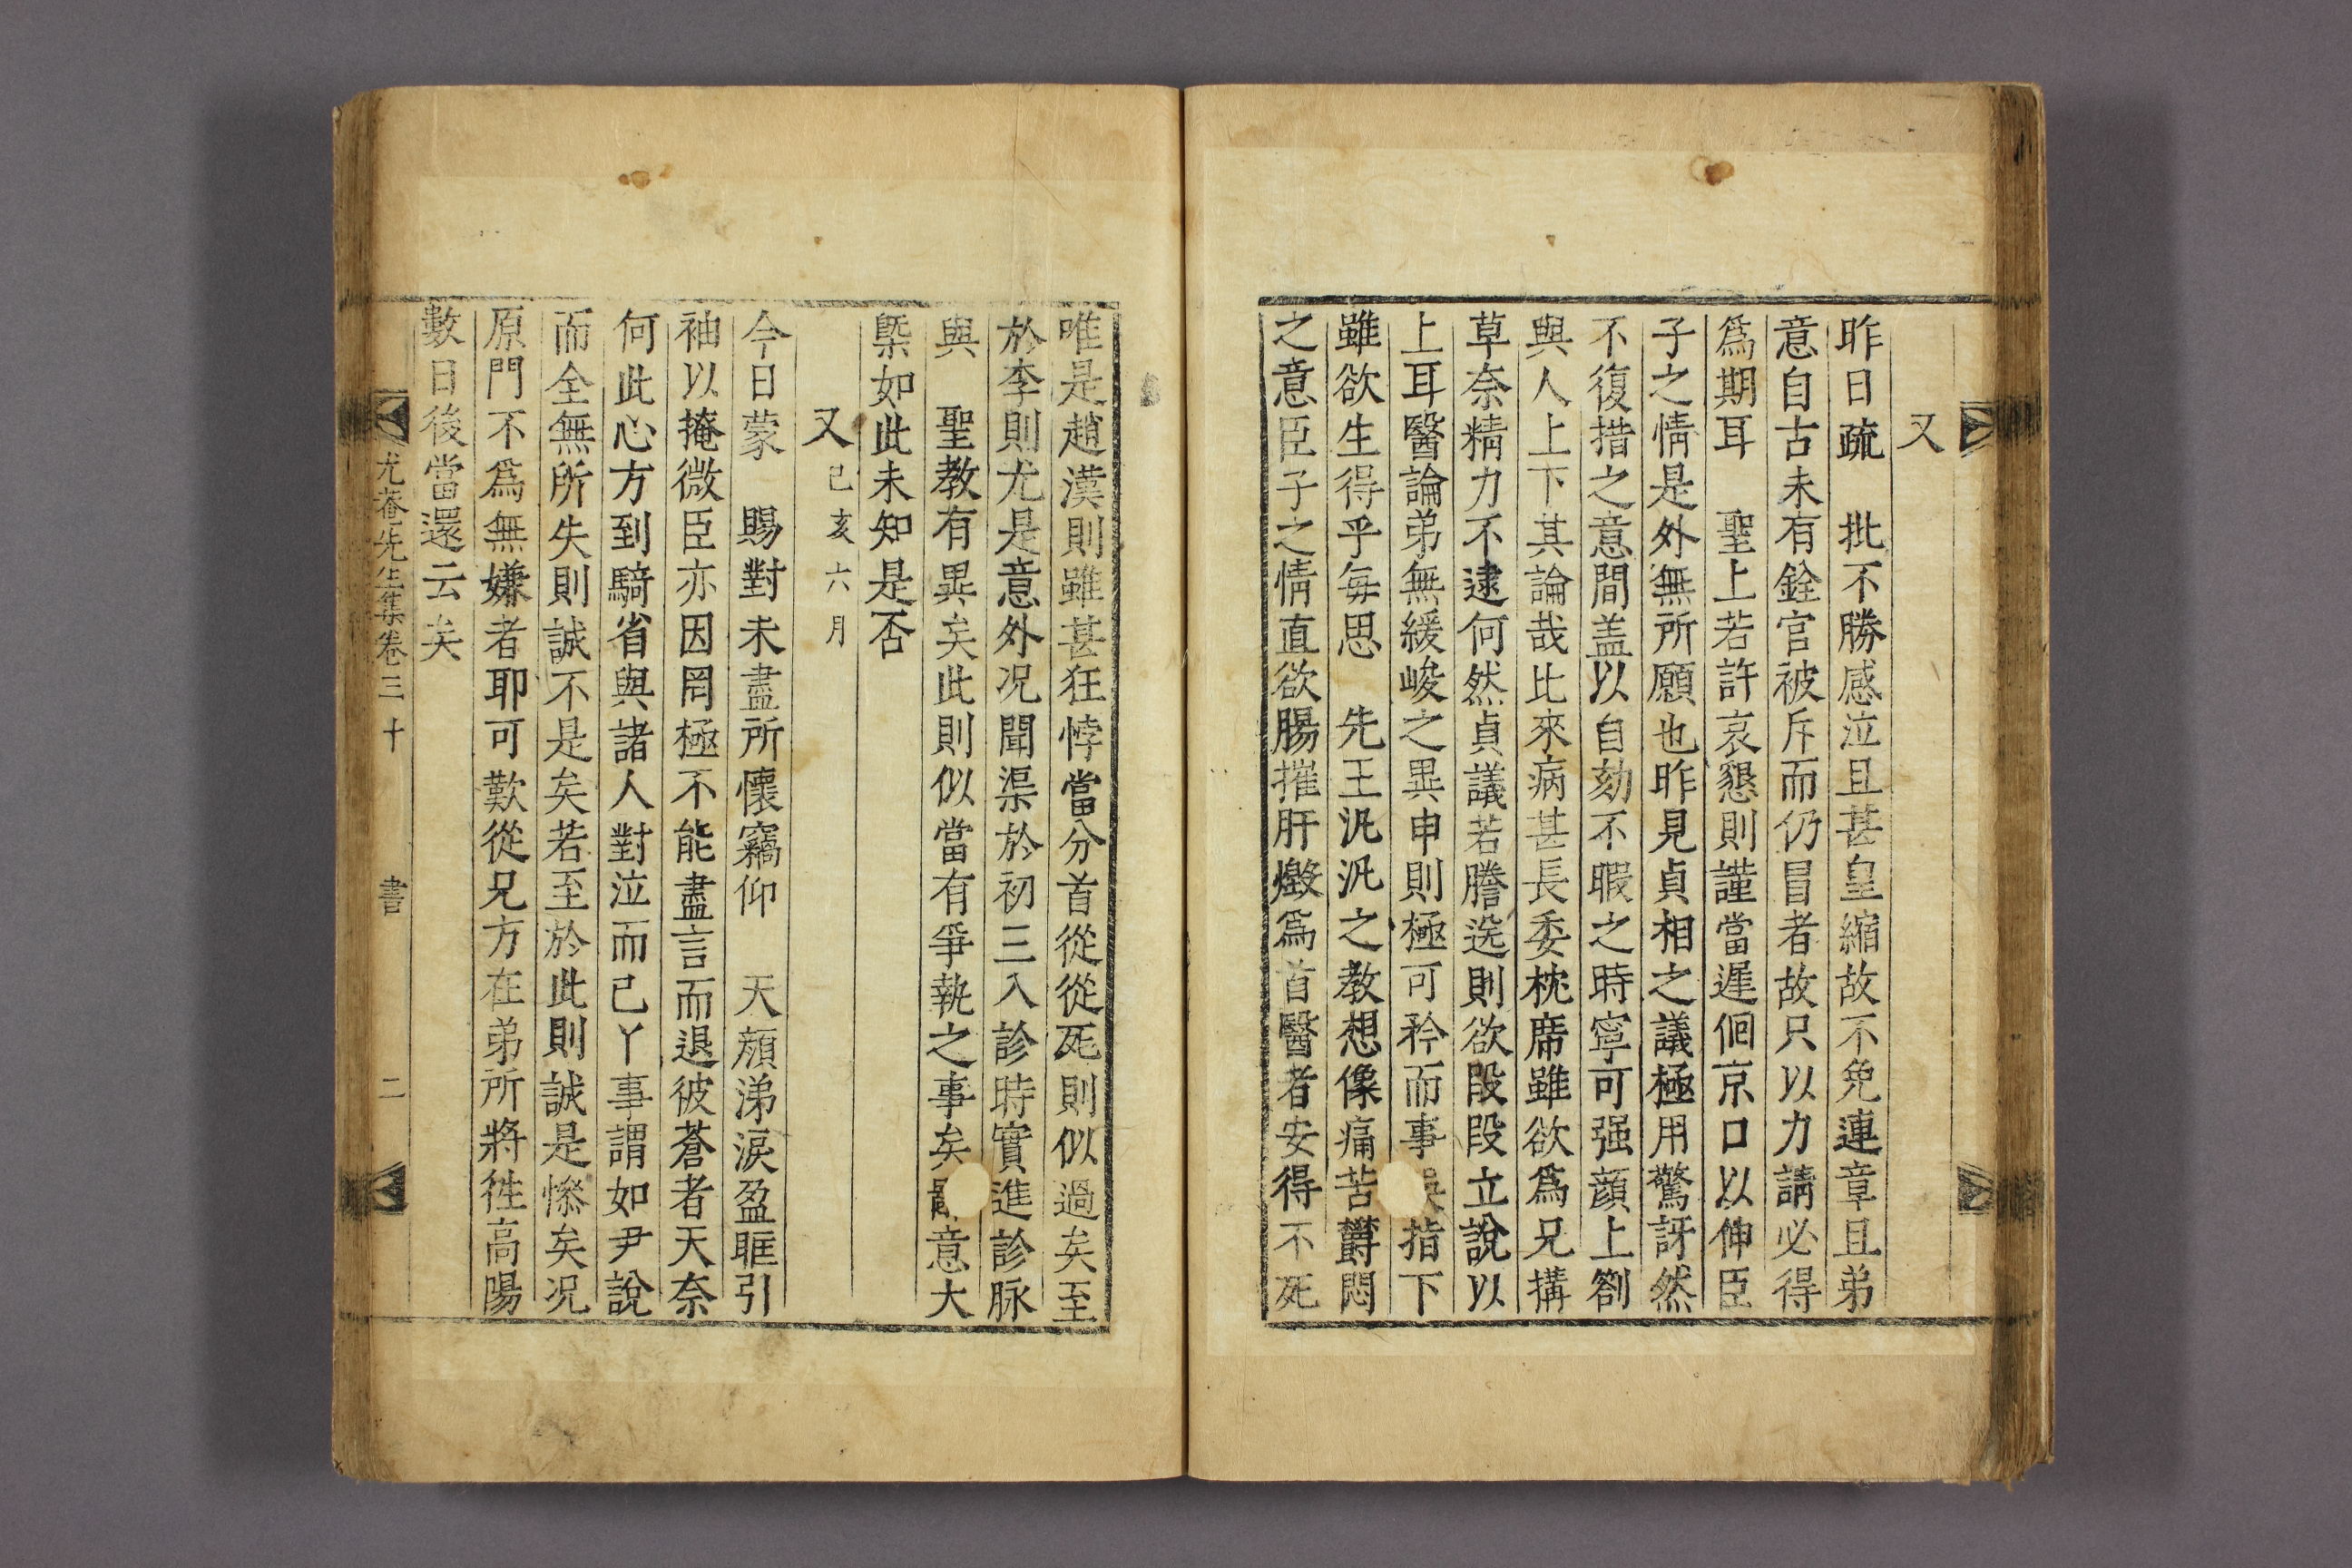 又
昨日疏　批不勝感泣且甚皇縮故不免連章且弟
意自古未有銓官被斥而仍冒者故只以力請必得
爲期耳　聖上若許哀懇則謹當遲佪京口以伸臣
子之情是外無所願也昨見貞相之議極用驚訝然
不復措之意間盖以自劾不暇之時寧可强顔上劄
與人上下其論哉比來病甚長委枕席雖欲爲兄搆
草奈精力不逮何然貞議若謄送則欲段段立說以
上耳醫論弟無緩峻之異申則極可矜而事指下
雖欲生得乎每思　先王汎汎之教想像痛苦欝悶
之意臣子之情直欲腸摧肝燬爲首醫者安得不死
唯是趙漢則雖甚狂悖當分首從從死則似過矣至
於李則尤是意外况聞渠於初三入診時實進診脉
與　聖教有異矣此則似當有爭執之事矣意大
槩如此未知是否
又己亥六月
今日蒙　賜對未盡所懷竊仰　天顔涕淚盈眶引
袖以掩微臣亦因罔極不能盡言而退彼蒼者天奈
何此心方到騎省與諸人對泣而已丫事謂如尹說
而全無所失則誠不是矣若至於此則誠是慘矣况
原門不爲無嫌者耶可歎從兄方在弟所將徃高陽
數日後當還云矣
尤菴先生集卷三十　書　二